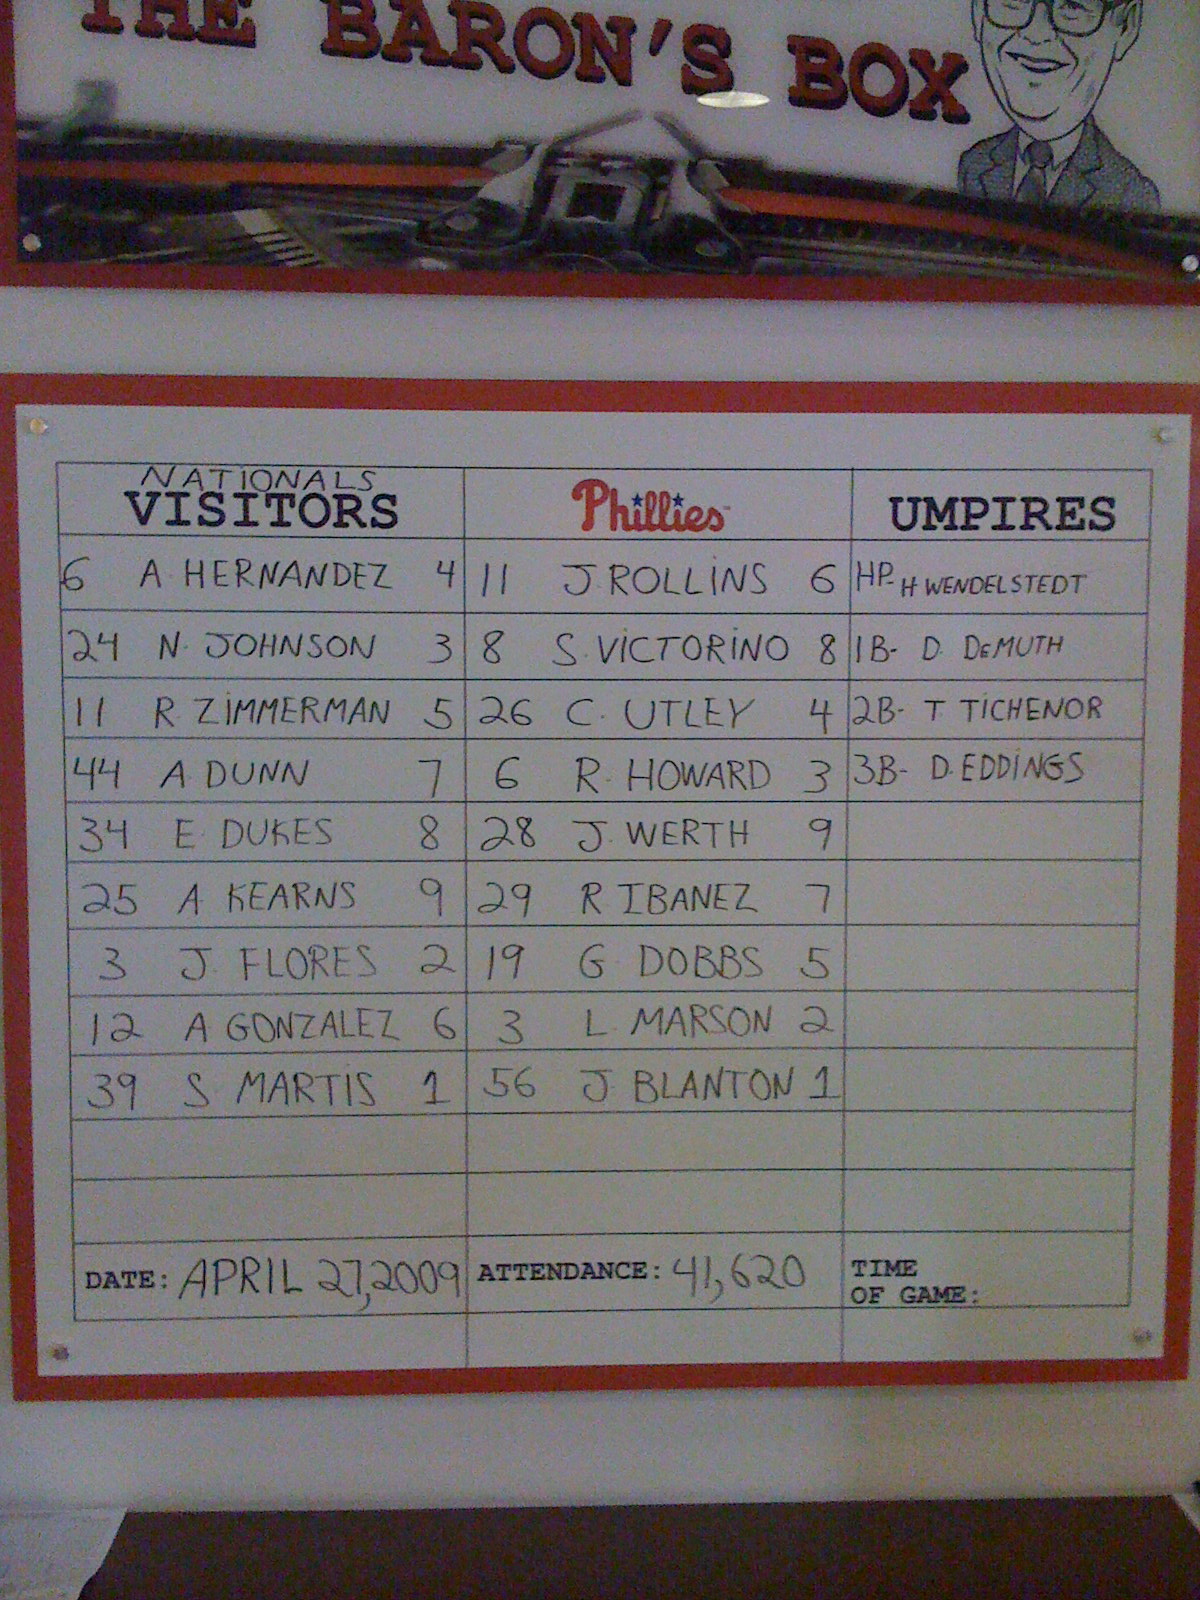 THE BARON'S BOX
NATIONALS
VISITORS Phillies UMPIRES
6 A. HERNANDEZ 4 11 J. ROLLINS 6 HP- H WENDELSTEDT
24 N. JOHNSON 3 8 S. VICTORINO 8 1B- D. DeMUTH
11 R ZIMMERMAN 5 26 C. UTLEY 4 2B- T. TICHENOR
44 A DUNN 7 6 R. HOWARD 3 3B- D. EDDINGS
34 E. DUKES 8 28 J. WERTH 9
25 A. KEARNS 9 29 R IBANEZ 7
3 J. FLORES 2 19 G. DOBBS 5
12 A GONZALEZ 6 3 L. MARSON 2
39 S. MARTIS 1 56 J BLANTON 1
DATE: APRIL 27, 2009 ATTENDANCE: 41,620 TIME
OF GAME: